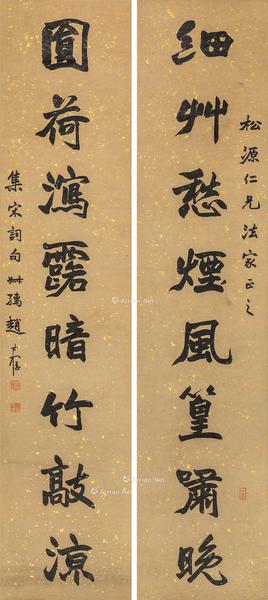 松源仁兄法家正之
細艸愁煙風篁嘯晚
圓荷瀉露暗竹敲涼
集宋詞句叔孺趙時棡